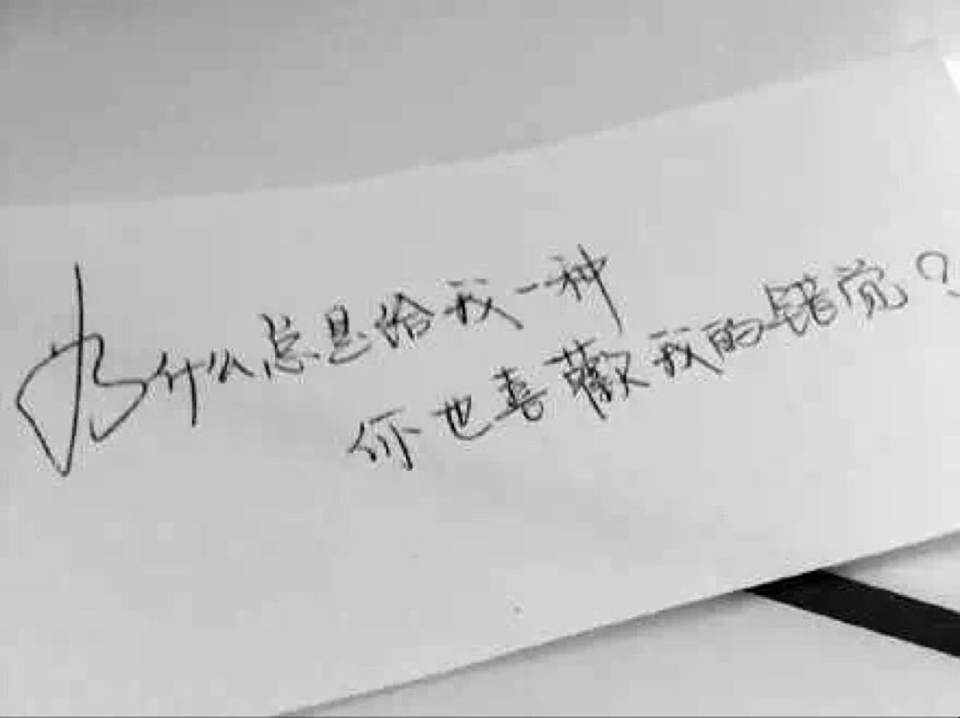 为什么总是给我一种
你也喜歡我的錯觉？